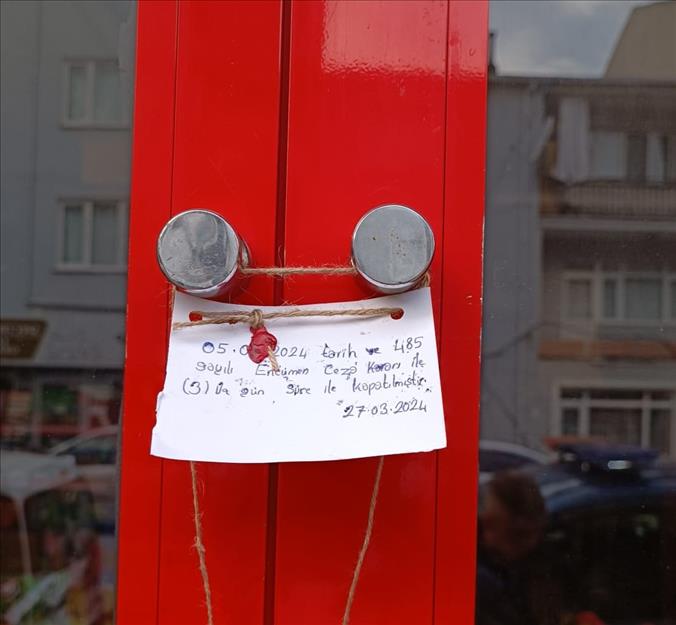 tarih ve 485
sayılı Encümen Ceza Kararı ile
(3) Üç gün süre ile kapatılmıştır.
27.03.2024